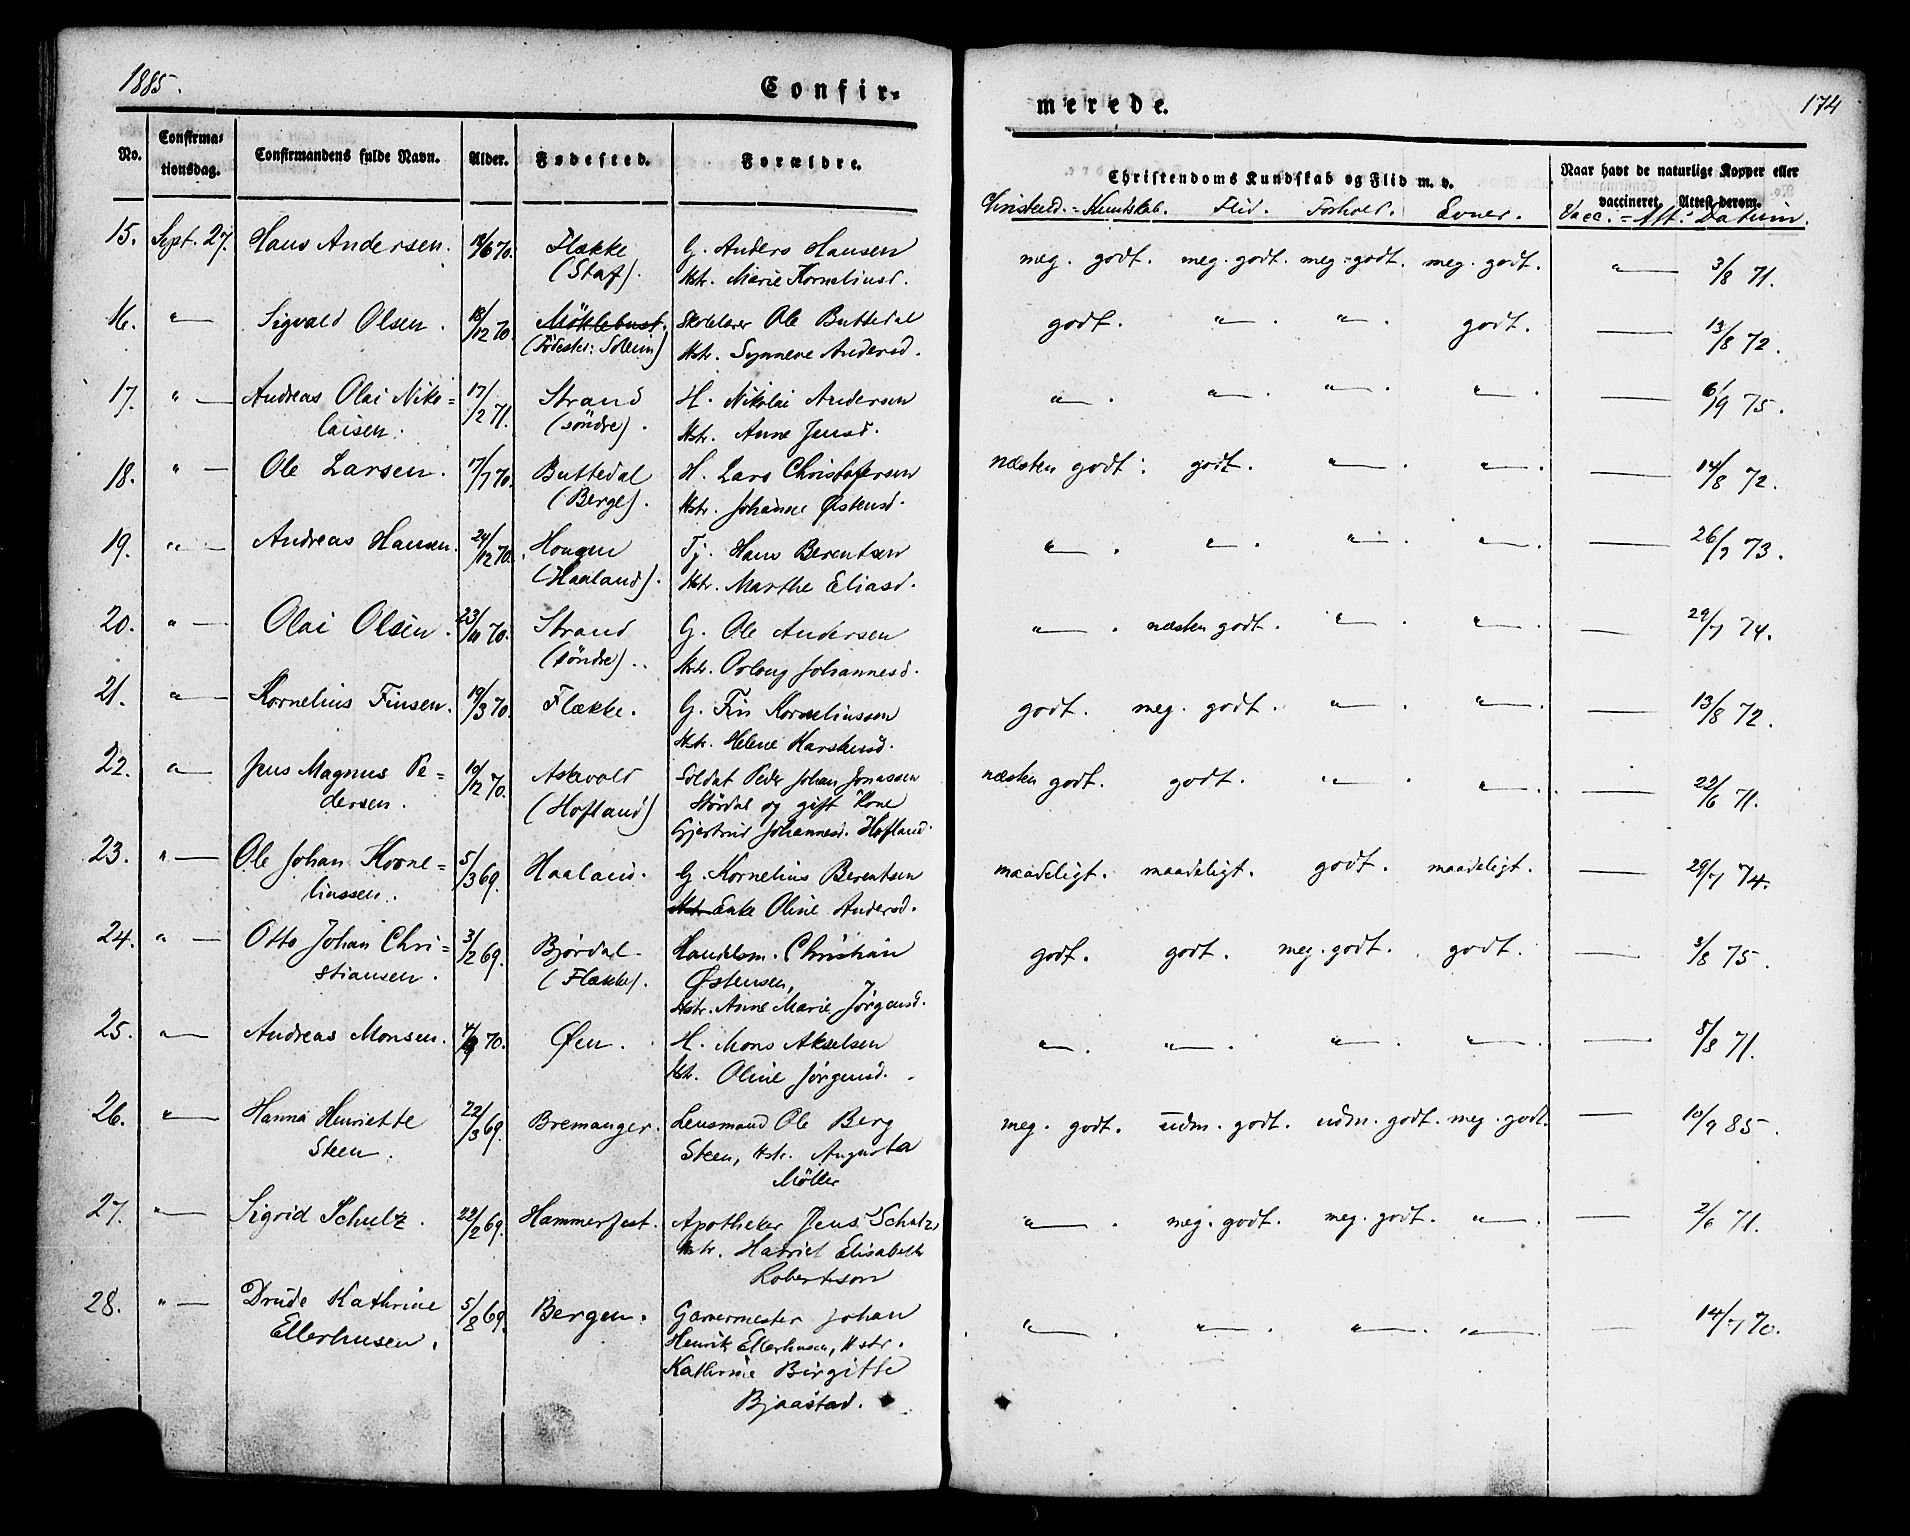 1885.
Confir-
merede.
174
No.
Confirma-
tionsdag.
Confirmandens fulde Navn.
Alder.
Fødested.
Forældre.
Christendoms Kundskab og Flid m. v.
Naar havt de naturlige Kopper eller
vaccineret. Attest derom.
Christend.=Kundskab. Flid. Forhold. Evner. Vacc.=Att. Datum.
15. Sept. 27. Hans Andersen. 18/6 70. Flække G. Anders Hansen meg. godt. meg. godt. meg. godt. meg. godt. " — 3/8 71.
(Staf). Hstr. Marie Korneliusd.
16. " — Sigvald Olsen. 18/12 70. Möklebust. Skolelærer Ole Buttedal godt. " — . " — . godt. — 13/8 72.
(Födested: Solheim) Hstr. Synneve Andersd.
17. " — Andreas Olai Niko= 17/2 71. Strand H. Nikolai Andersen " — . " — . " — . " — . — 6/9 75.
laisen. (söndre). Hstr. Anne Jensd.
18. " — Ole Larsen. 17/7 70. Buttedal H. Lars Christofersen næsten godt. godt. " — . " — . — 14/8 72.
(Berge). Hstr. Johanne Østensd.
19. " — Andreas Hansen. 24/12 70. Hougen Tj. Hans Berentsen " — . " — . " — . " — . — 26/7 73.
(Haaland). Hstr. Marthe Eliasd.
20. " — Olai Olsen. 23/10 70. Strand G. Ole Andersen " — . næsten godt. " — . " — . — 29/7 74.
(söndre). Hstr. Oxloug Johannesd.
21. " — Kornelius Finsen. 19/3 70. Flække. G. Fin Korneliussen godt. meg. godt. " — . " — . — 13/8 72.
Hstr. Helene Karstensd.
22. " — Jens Magnus Pe= 10/12 70. Askvold Soldat Peder Johan Jonassen næsten godt. godt. " — . " — . — 22/6 71.
dersen. (Hofland) Stördal og gift Kone
Gjertrud Johannesd. Hofland.
23. " — Ole Johan Korne= 5/3 69. Haaland. G. Kornelius Berentsen maadeligt. maadeligt. godt. maadeligt. — 29/7 74.
liussen. Hstr. Enke Oline Andersd.
24. " — Otto Johan Chri= 3/2 69. Björdal Handelsm. Christian godt. godt. meg. godt. godt. — 3/8 75.
stiansen. (Flække). Østensen,
Hstr. Anne Marie Jörgensd.
25. " — Andreas Monsen. 4/9 70. Øen. H. Mons Akselsen " — . " — . " — . " — . — 8/8 71.
Hstr. Oline Jörgensd.
26. " — Hanna Henriette 22/3 69. Bremanger. Lensmand Ole Berg meg. godt. udm. godt. udm. godt. meg. godt. — 10/9 85.
Steen. Steen, Hstr. Augusta
Möller
27. " — Sigrid Schulz. 22/2 69. Hammerfest. Apotheker Jens Schulz, " — . meg. godt. meg. godt. " — . — 2/6 71.
Hstr. Harriet Elisabeth
Robertson
28. " — Drude Kathrine 5/8 69. Bergen. Garvermester Johan " — . " — . " — . " — . — 14/7 70.
Ellerhusen. Henrik Ellerhusen, Hstr.
Kathrine Birgitte
Bjaastad.